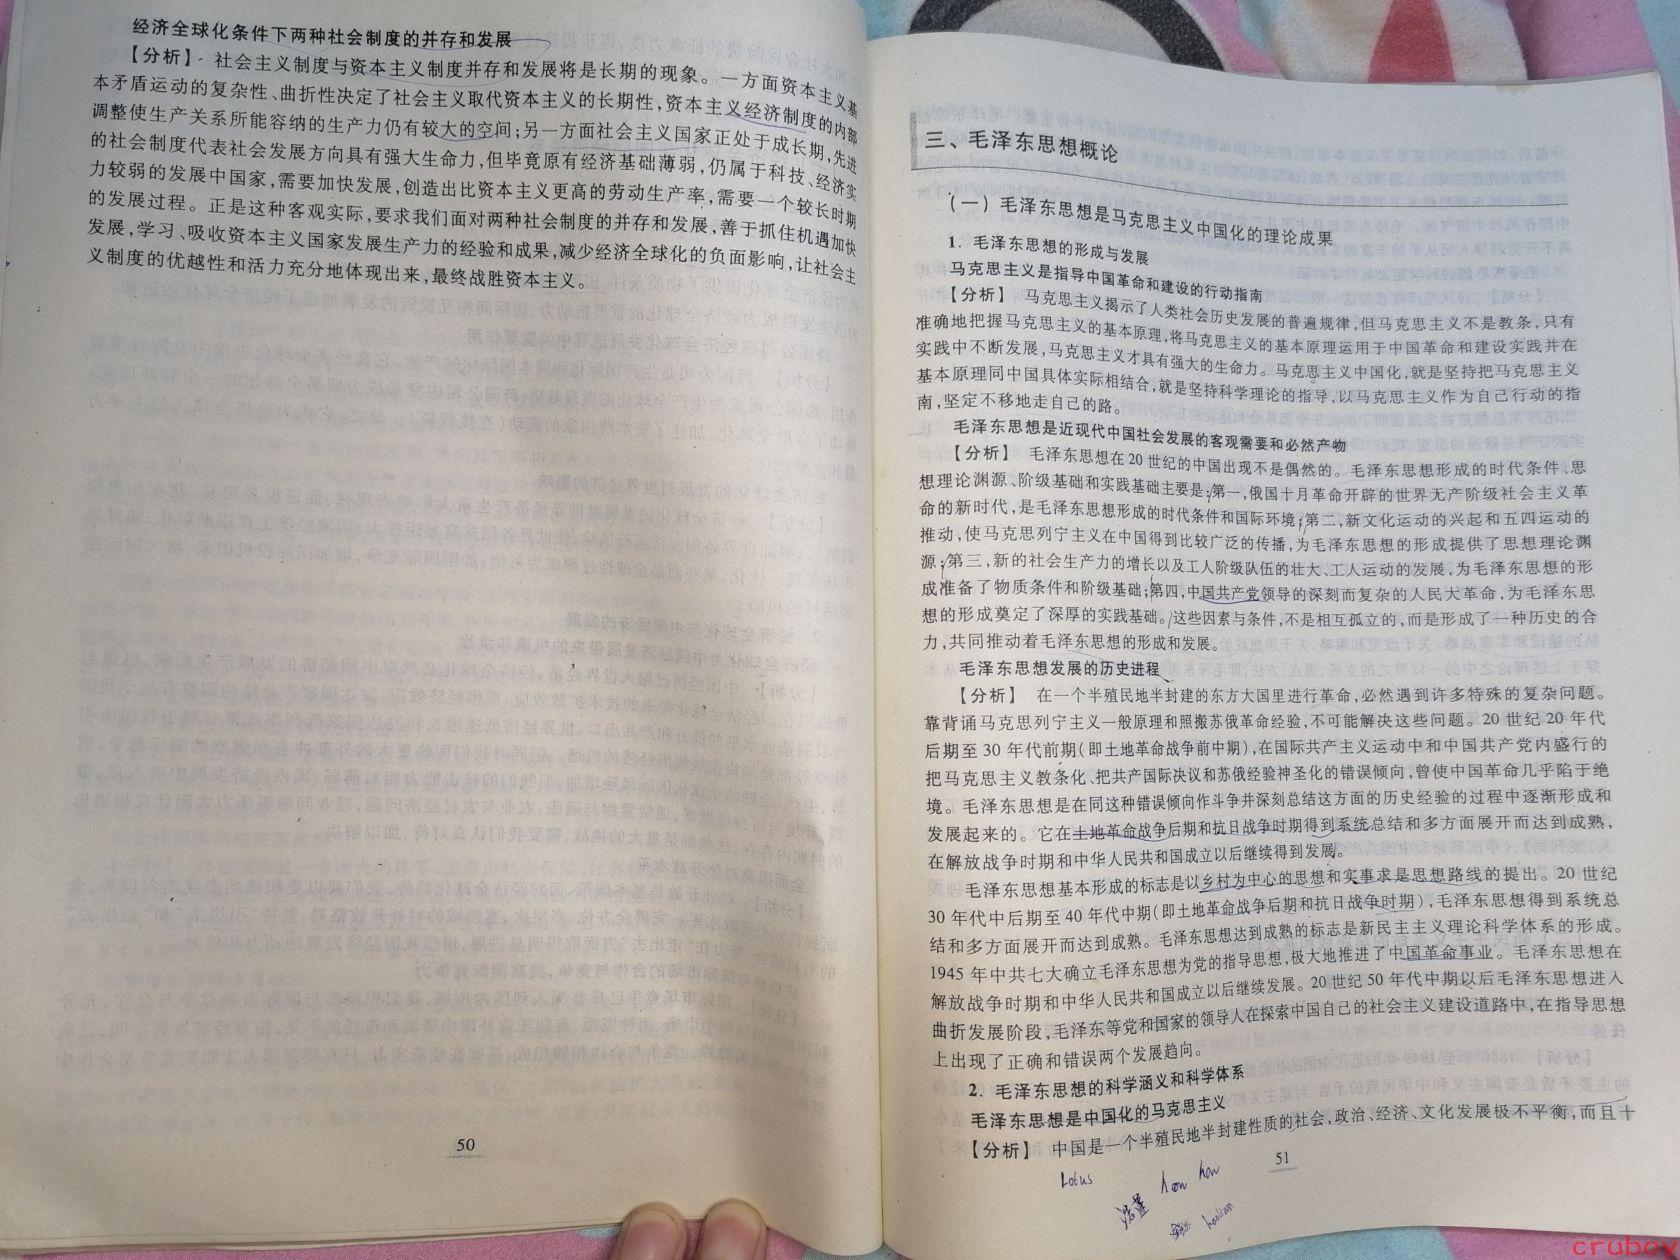 经济全球化条件下两种社会制度的并存和发展
【分析】 社会主义制度与资本主义制度并存和发展将是长期的现象。一方面资本主义基
本矛盾运动的复杂性、曲折性决定了社会主义取代资本主义的长期性，资本主义经济制度的内部
调整使生产关系所能容纳的生产力仍有较大的空间；另一方面社会主义国家正处于成长期，先进
的社会制度代表社会发展方向具有强大生命力，但毕竟原有经济基础薄弱，仍属于科技、经济实
力较弱的发展中国家，需要加快发展，创造出比资本主义更高的劳动生产率，需要一个较长时期
的发展过程。正是这种客观实际，要求我们面对两种社会制度的并存和发展，善于抓住机遇加快
发展，学习、吸收资本主义国家发展生产力的经验和成果，减少经济全球化的负面影响，让社会主
义制度的优越性和活力充分地体现出来，最终战胜资本主义。
50
三、毛泽东思想概论
（一）毛泽东思想是马克思主义中国化的理论成果
1. 毛泽东思想的形成与发展
马克思主义是指导中国革命和建设的行动指南
【分析】 马克思主义揭示了人类社会历史发展的普遍规律，但马克思主义不是教条，只有
准确地把握马克思主义的基本原理，将马克思主义的基本原理运用于中国革命和建设实践并在
实践中不断发展，马克思主义才具有强大的生命力。马克思主义中国化，就是坚持把马克思主义
基本原理同中国具体实际相结合，就是坚持科学理论的指导，以马克思主义作为自己行动的指
南，坚定不移地走自己的路。
毛泽东思想是近现代中国社会发展的客观需要和必然产物
【分析】 毛泽东思想在20世纪的中国出现不是偶然的。毛泽东思想形成的时代条件、思
想理论渊源、阶级基础和实践基础主要是：第一，俄国十月革命开辟的世界无产阶级社会主义革
命的新时代，是毛泽东思想形成的时代条件和国际环境；第二，新文化运动的兴起和五四运动的
推动，使马克思列宁主义在中国得到比较广泛的传播，为毛泽东思想的形成提供了思想理论渊
源；第三，新的社会生产力的增长以及工人阶级队伍的壮大、工人运动的发展，为毛泽东思想的形
成准备了物质条件和阶级基础；第四，中国共产党领导的深刻而复杂的人民大革命，为毛泽东思
想的形成奠定了深厚的实践基础。这些因素与条件，不是相互孤立的，而是形成了一种历史的合
力，共同推动着毛泽东思想的形成和发展。
毛泽东思想发展的历史进程
【分析】 在一个半殖民地半封建的东方大国里进行革命，必然遇到许多特殊的复杂问题。
靠背诵马克思列宁主义一般原理和照搬苏俄革命经验，不可能解决这些问题。20世纪20年代
后期至30年代前期（即土地革命战争前中期），在国际共产主义运动中和中国共产党内盛行的
把马克思主义教条化、把共产国际决议和苏俄经验神圣化的错误倾向，曾使中国革命几乎陷于绝
境。毛泽东思想是在同这种错误倾向作斗争并深刻总结这方面的历史经验的过程中逐渐形成和
发展起来的。它在土地革命战争后期和抗日战争时期得到系统总结和多方面展开而达到成熟，
在解放战争时期和中华人民共和国成立以后继续得到发展。
毛泽东思想基本形成的标志是以乡村为中心的思想和实事求是思想路线的提出。20世纪
30年代中后期至40年代中期（即土地革命战争后期和抗日战争时期），毛泽东思想得到系统总
结和多方面展开而达到成熟。毛泽东思想达到成熟的标志是新民主主义理论科学体系的形成。
1945年中共七大确立毛泽东思想为党的指导思想，极大地推进了中国革命事业。毛泽东思想在
解放战争时期和中华人民共和国成立以后继续发展。20世纪50年代中期以后毛泽东思想进入
曲折发展阶段，毛泽东等党和国家的领导人在探索中国自己的社会主义建设道路中，在指导思想
上出现了正确和错误两个发展趋向。
2. 毛泽东思想的科学涵义和科学体系
毛泽东思想是中国化的马克思主义
【分析】 中国是一个半殖民地半封建性质的社会，政治、经济、文化发展极不平衡，而且十
51
Lotus
crubov